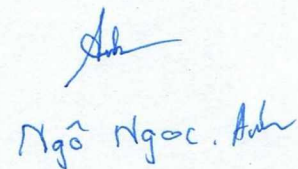 Anh
Ngô Ngọc. Anh